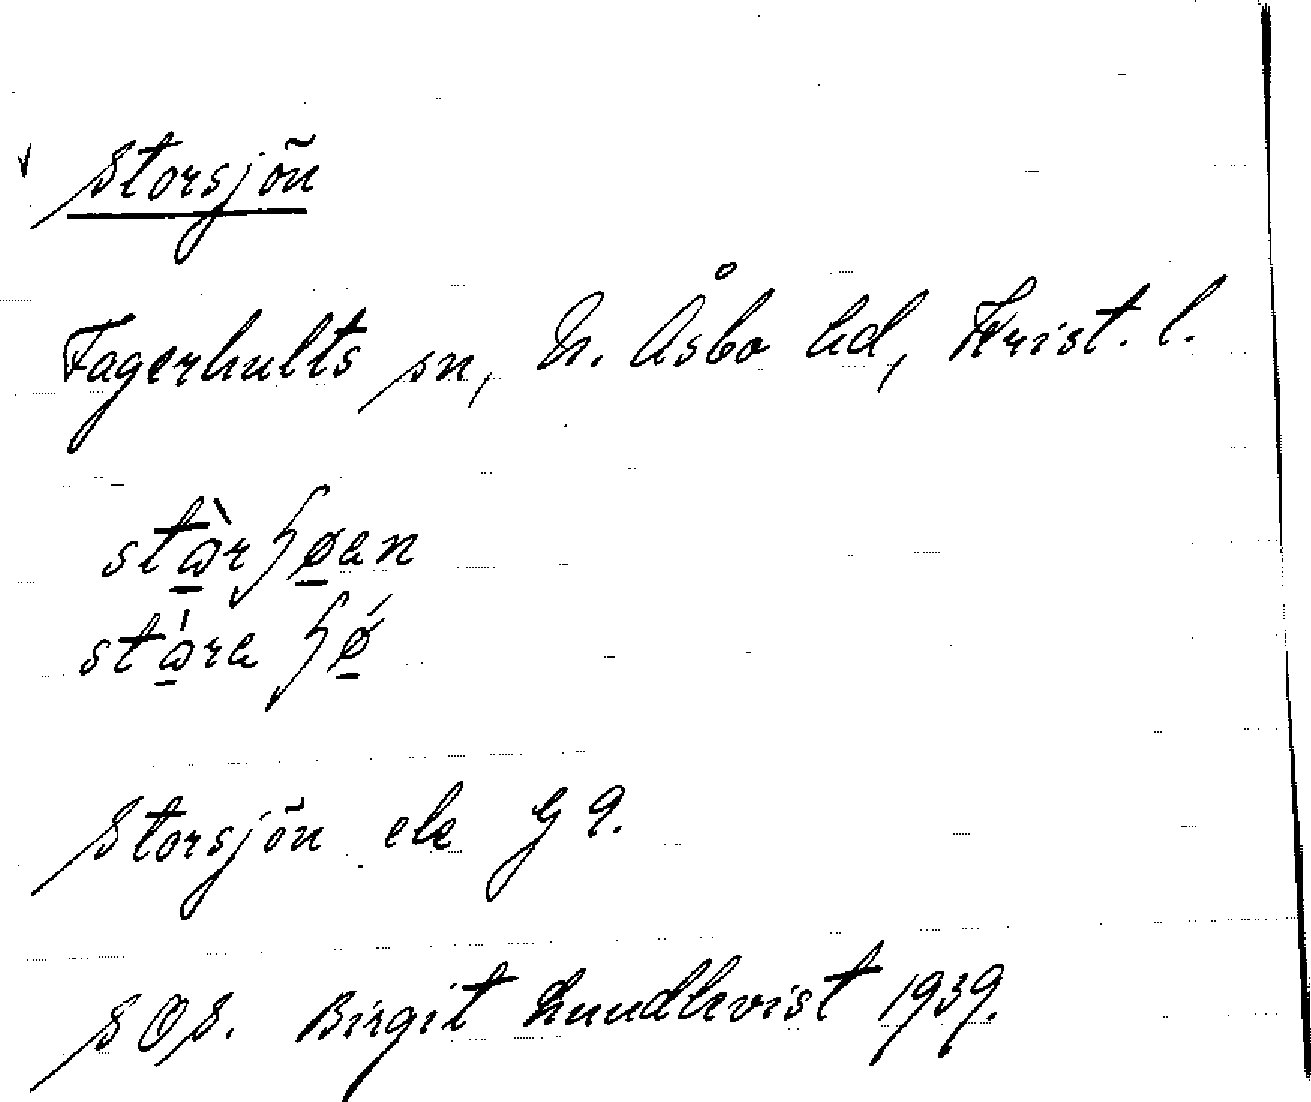 Storsjön
Fagerhults sn, N. Åsbo hd, Krist. l.
Storsjön ek G 9.
SOS. Birgit Lundkvist 1939.